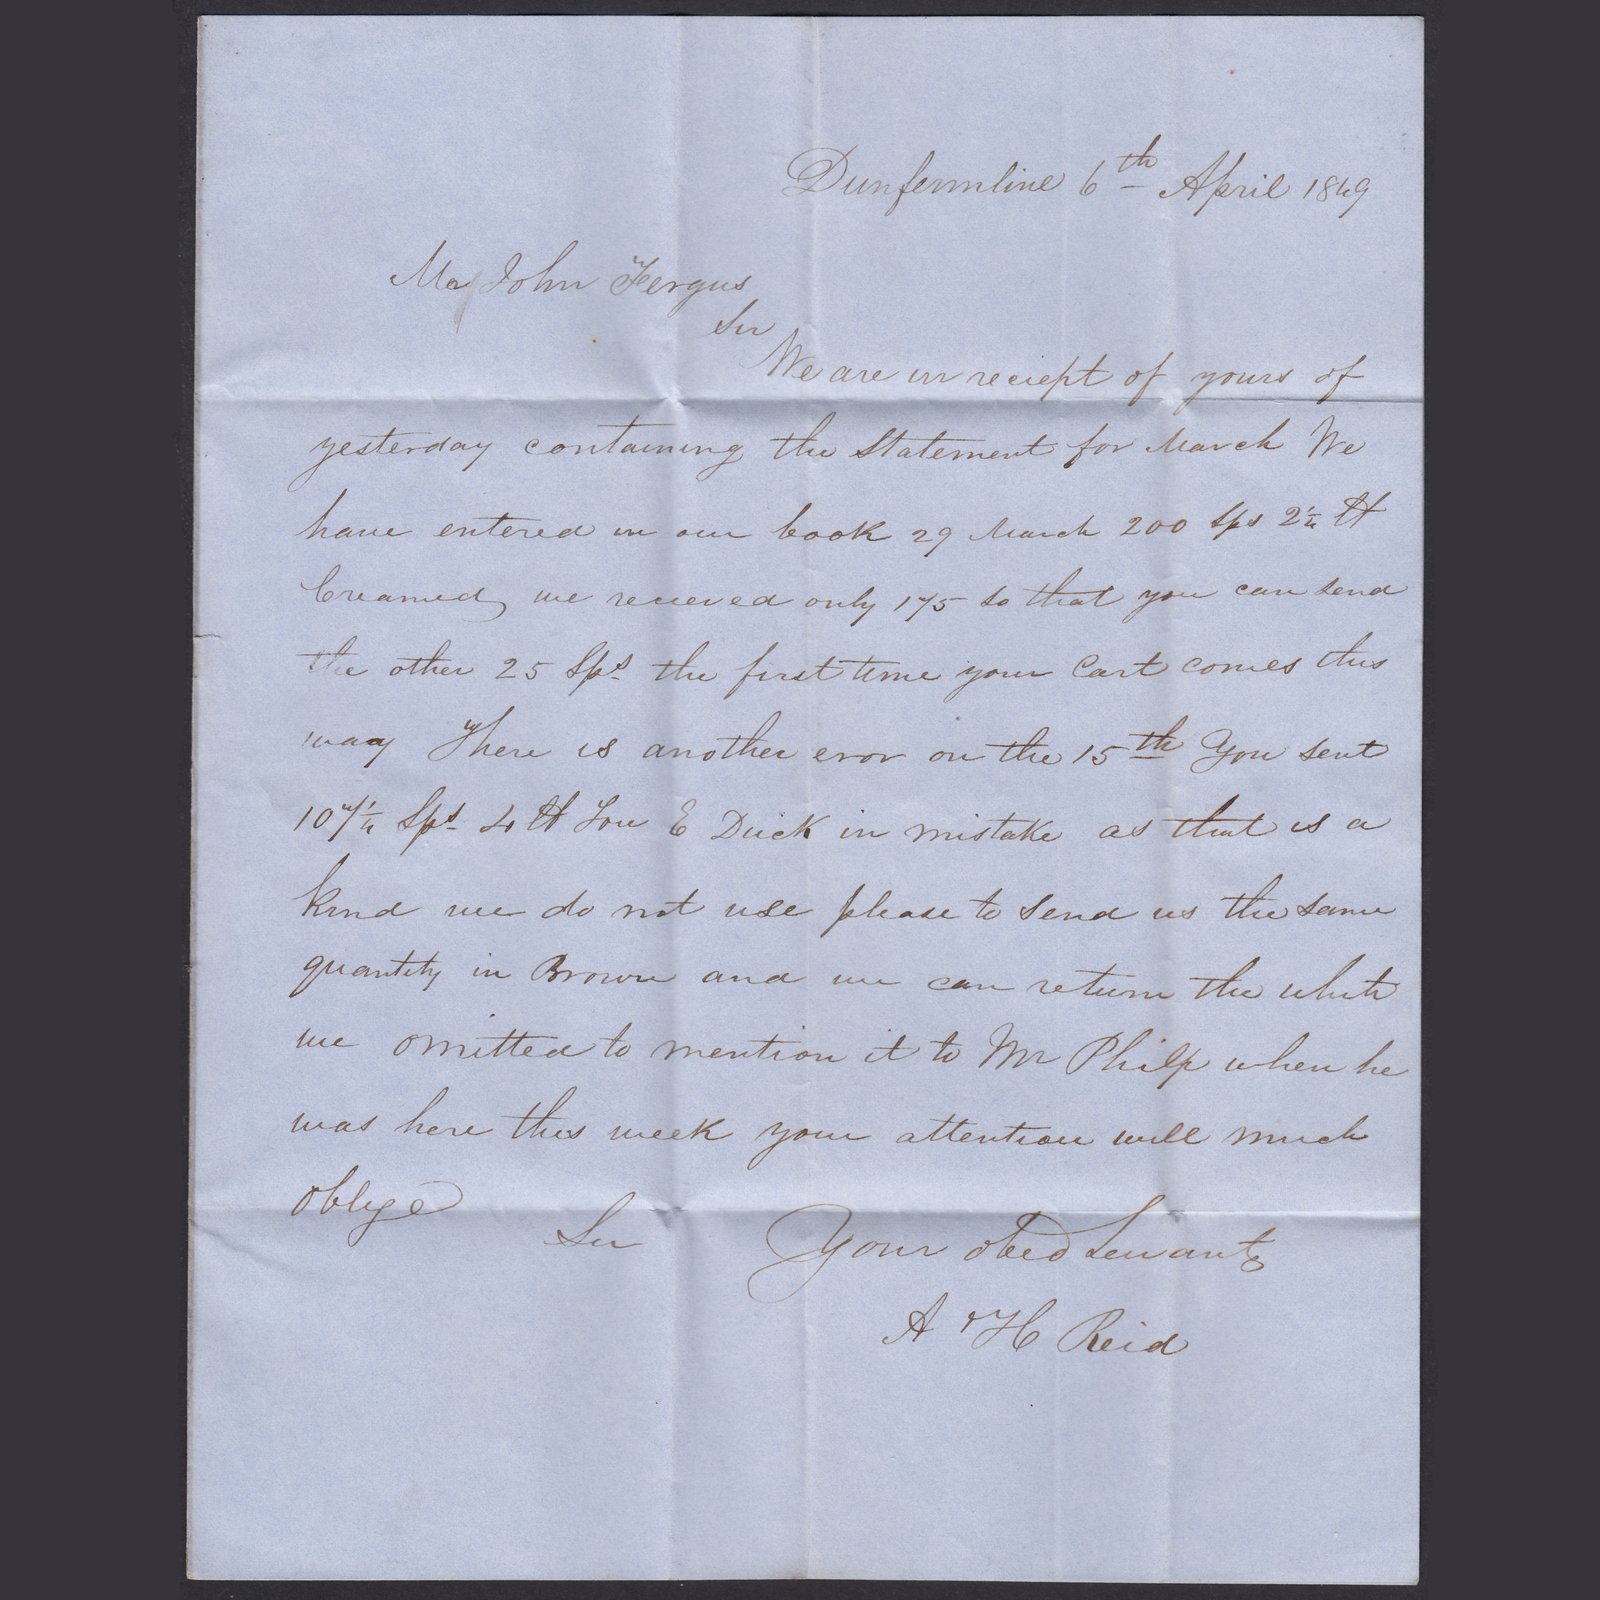 Dunfermline 6th April 1849
Mr John Fergus
Sir
We are in reciept of yours of
yesterday containing the Statement for March We
have entered in our book 29 March 200 Sps 2¼ ℔
Creamed we recieved only 175 so that you can send
the other 25 Sps the first time your Cart comes this
way There is another eror on the 15th You sent
107¼ Sps 4 ℔ Tow E Duck in mistake as that is a
kind we do not use please to send us the same
quantity in Brown and we can return the white
we omitted to mention it to Mr Philp when he
was here this week your attention will much
oblige
Sir
Your obed Servants
A & H Reid